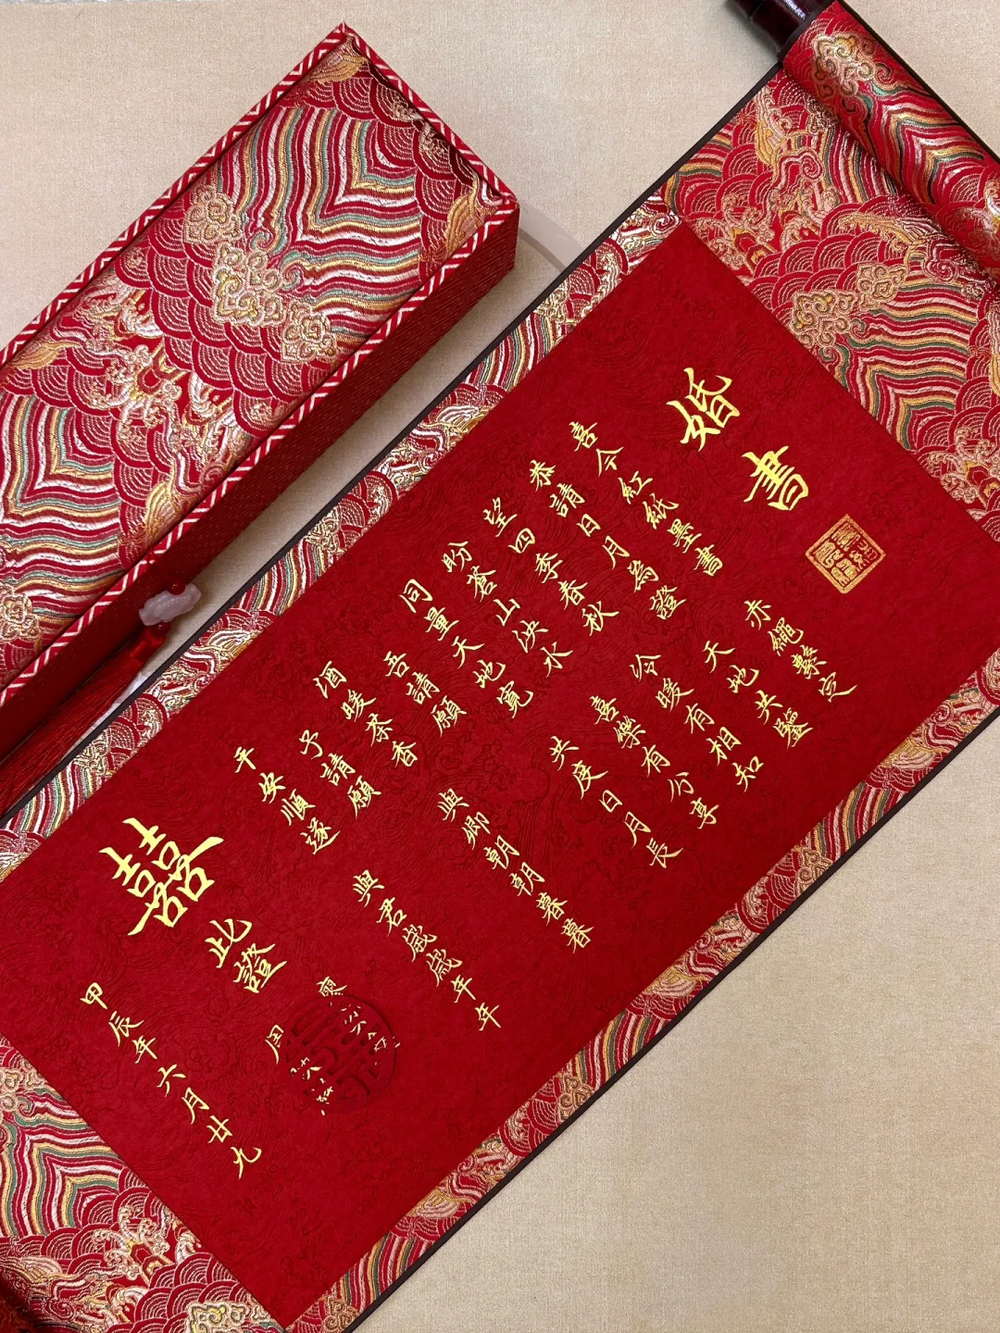 婚書
喜今紅紙墨書 赤繩繫定
恭請日月為證 天地共鑒
望四季春秋 冷暖有相知
盼蒼山泱水 喜樂有分享
同量天地寬 共度日月長
吾請願
酒暖茶香 與卿朝朝暮暮
予請願
平安順遂 與君歲歲年年
此證
周
囍
甲辰年六月廿九